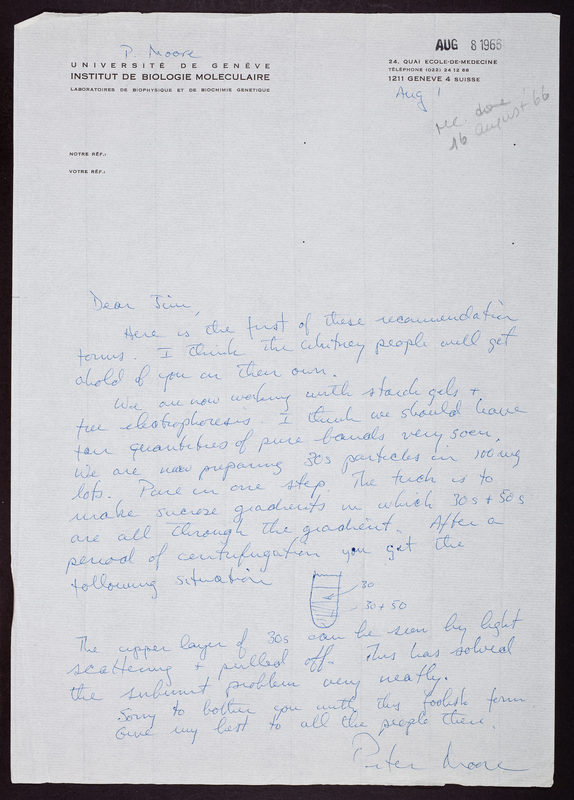 P. Moore
AUG 8 1966
UNIVERSITÉ DE GENÈVE
INSTITUT DE BIOLOGIE MOLECULAIRE
LABORATOIRES DE BIOPHYSIQUE ET DE BIOCHIMIE GENETIQUE
24, QUAI ECOLE-DE-MEDECINE
TÉLÉPHONE (022) 24 12 68
1211 GENEVE 4 SUISSE
Aug 1
rec. done
16 August 66
NOTRE RÉF.:
VOTRE RÉF.:
Dear Jim,
Here is the first of these recommendation
forms. I think the Whitney people will get
ahold of you on their own.
We are now working with starch gels +
free electrophoresis I think we should have
fair quantities of pure bands very soon.
We are now preparing 30s particles in 100 mg
lots. Pure in one step. The trick is to
make sucrose gradients in which 30s + 50s
are all through the gradient. After a
period of centrifugation you get the
following situation
30
30 + 50
The upper layer of 30s can be seen by light
scattering + pulled off. This has solved
the subunit problem very neatly.
Sorry to bother you with this foolish form.
Give my best to all the people there.
Peter Moore